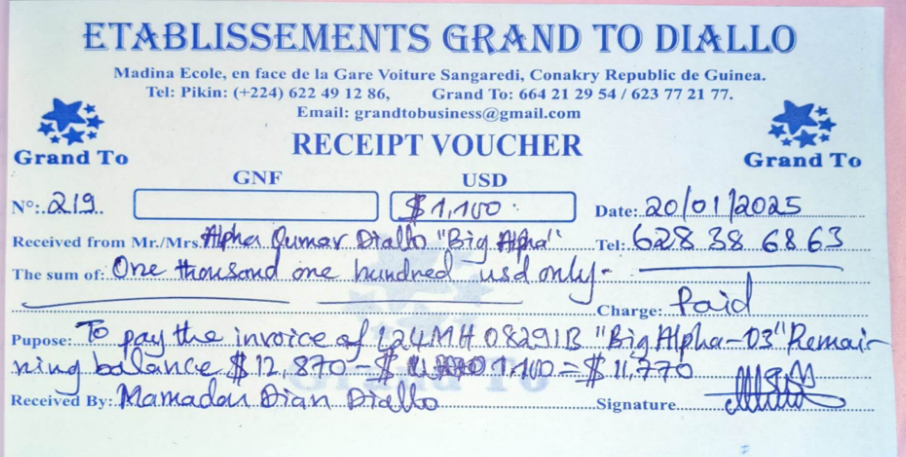 ETABLISSEMENTS GRAND TO DIALLO
Madina Ecole, en face de la Gare Voiture Sangaredi, Conakry Republic de Guinea.
Tel: Pikin: (+224) 622 49 12 86, Grand To: 664 21 29 54 / 623 77 21 77.
Email: grandtobusiness@gmail.com
RECEIPT VOUCHER
Grand To
Grand To
GNF USD
N°: 219 $1,100 Date: 20/01/2025
Received from Mr./Mrs. Alpha Oumar Diallo "Big Alpha" Tel: 628 38 68 63
The sum of: One thousand one hundred usd only-
Charge: Paid
Pupose: To pay the invoice of L24MH08291B "Big Alpha-03" Remai-
ning balance $12,870 - $ 1,100 = $11,770
Grand To
Received By: Mamadou Dian Diallo Signature